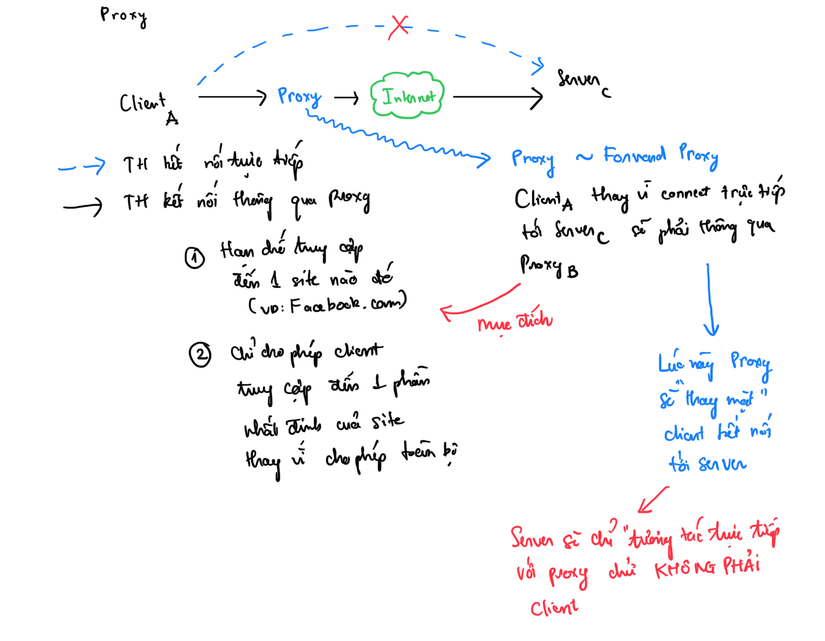 Proxy
Client A
Proxy
Internet
Server C
TH kết nối trực tiếp
TH kết nối thông qua proxy
Proxy ~ Forward Proxy
Client A thay vì connect trực tiếp
tới Server C sẽ phải thông qua
Proxy B
① Hạn chế truy cập
đến 1 site nào đó
(VD: Facebook.com)
mục đích
② Chỉ cho phép client
truy cập đến 1 phần
nhất định của site
thay vì cho phép toàn bộ
Lúc này Proxy
sẽ "thay mặt"
client kết nối
tới server
Server sẽ chỉ "tương tác trực tiếp
với proxy chứ KHÔNG PHẢI
Client